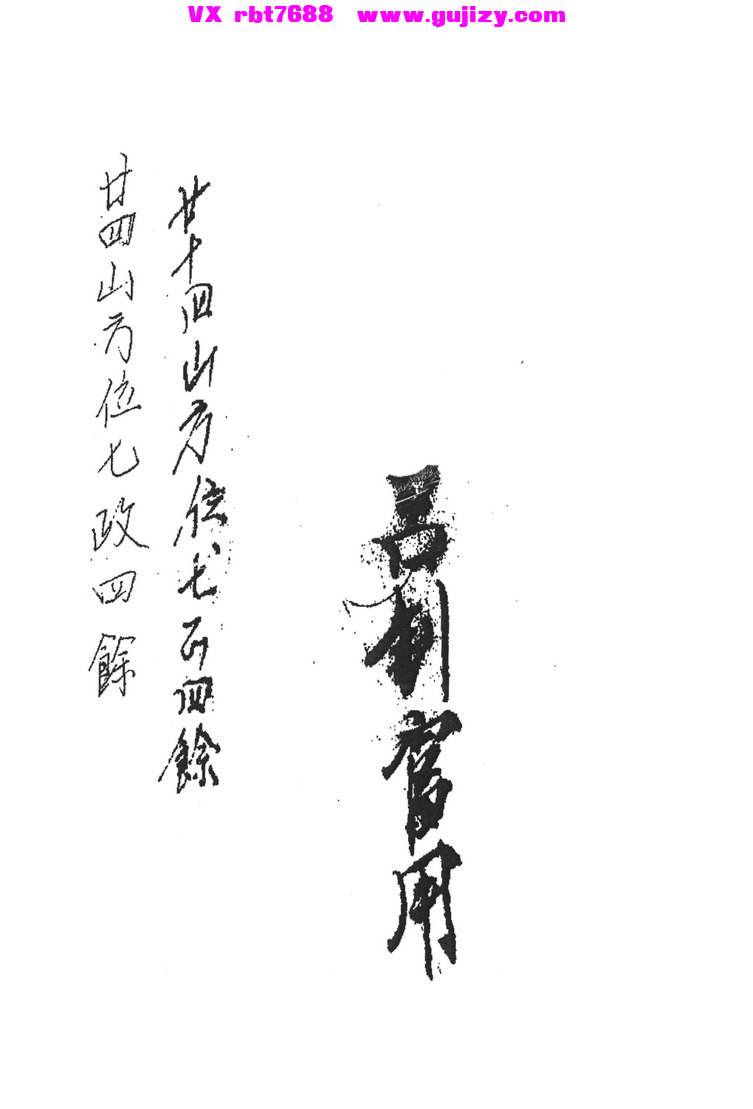 VX rbt7688 www.gujizy.com
官用
廿十四山方位七政四餘
廿四山方位七政四餘